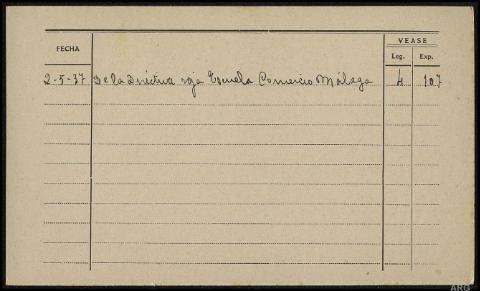 VEASE
FECHA Leg. Exp.
2-5-37 De la Directiva roja Escuela Comercio Málaga 4 107
ARG